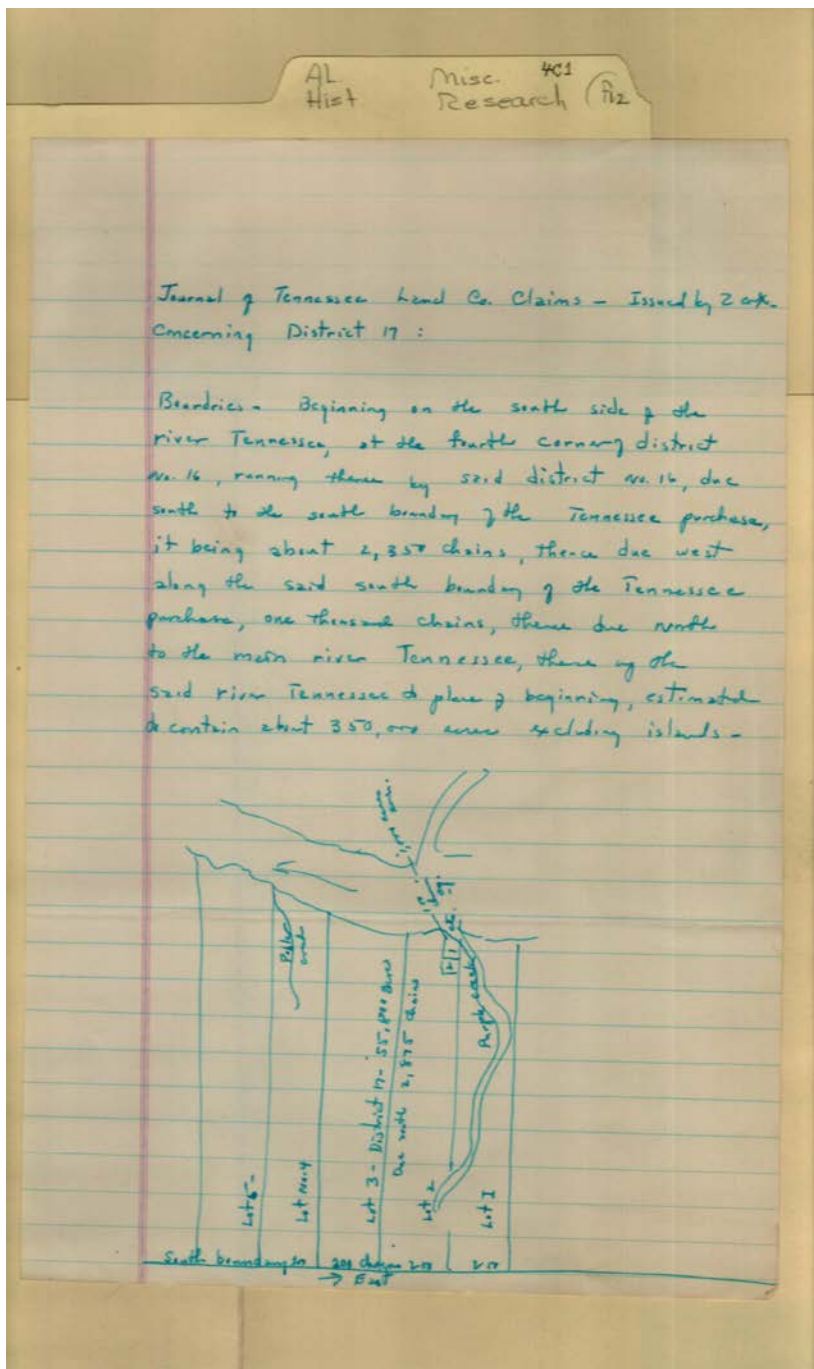 AL Misc. 4C1
Hist Research R12
Journal of Tennessee Land Co. Claims - Issued by Z
Concerning District 17 :
Boundries - Beginning on the south side of the
river Tennessee, at the fourth corner of district
No. 16, running thence by said district No. 16, due
south to the south boundary of the Tennessee purchase,
it being about 2,350 chains, thence due west
along the said south boundary of the Tennessee
purchase, one thousand chains, thence due north
to the main river Tennessee, thence up the
said river Tennessee to place of beginning, estimated
to contain about 350,000 acres excluding islands -
1
2
Lot 5 -
Lot No. 4
Lot 3 - District 17 - 55,000 acres
Due north 2,875 chains
Lot 2
Lot 1
South boundary 200 200 chains 200 200
→ East